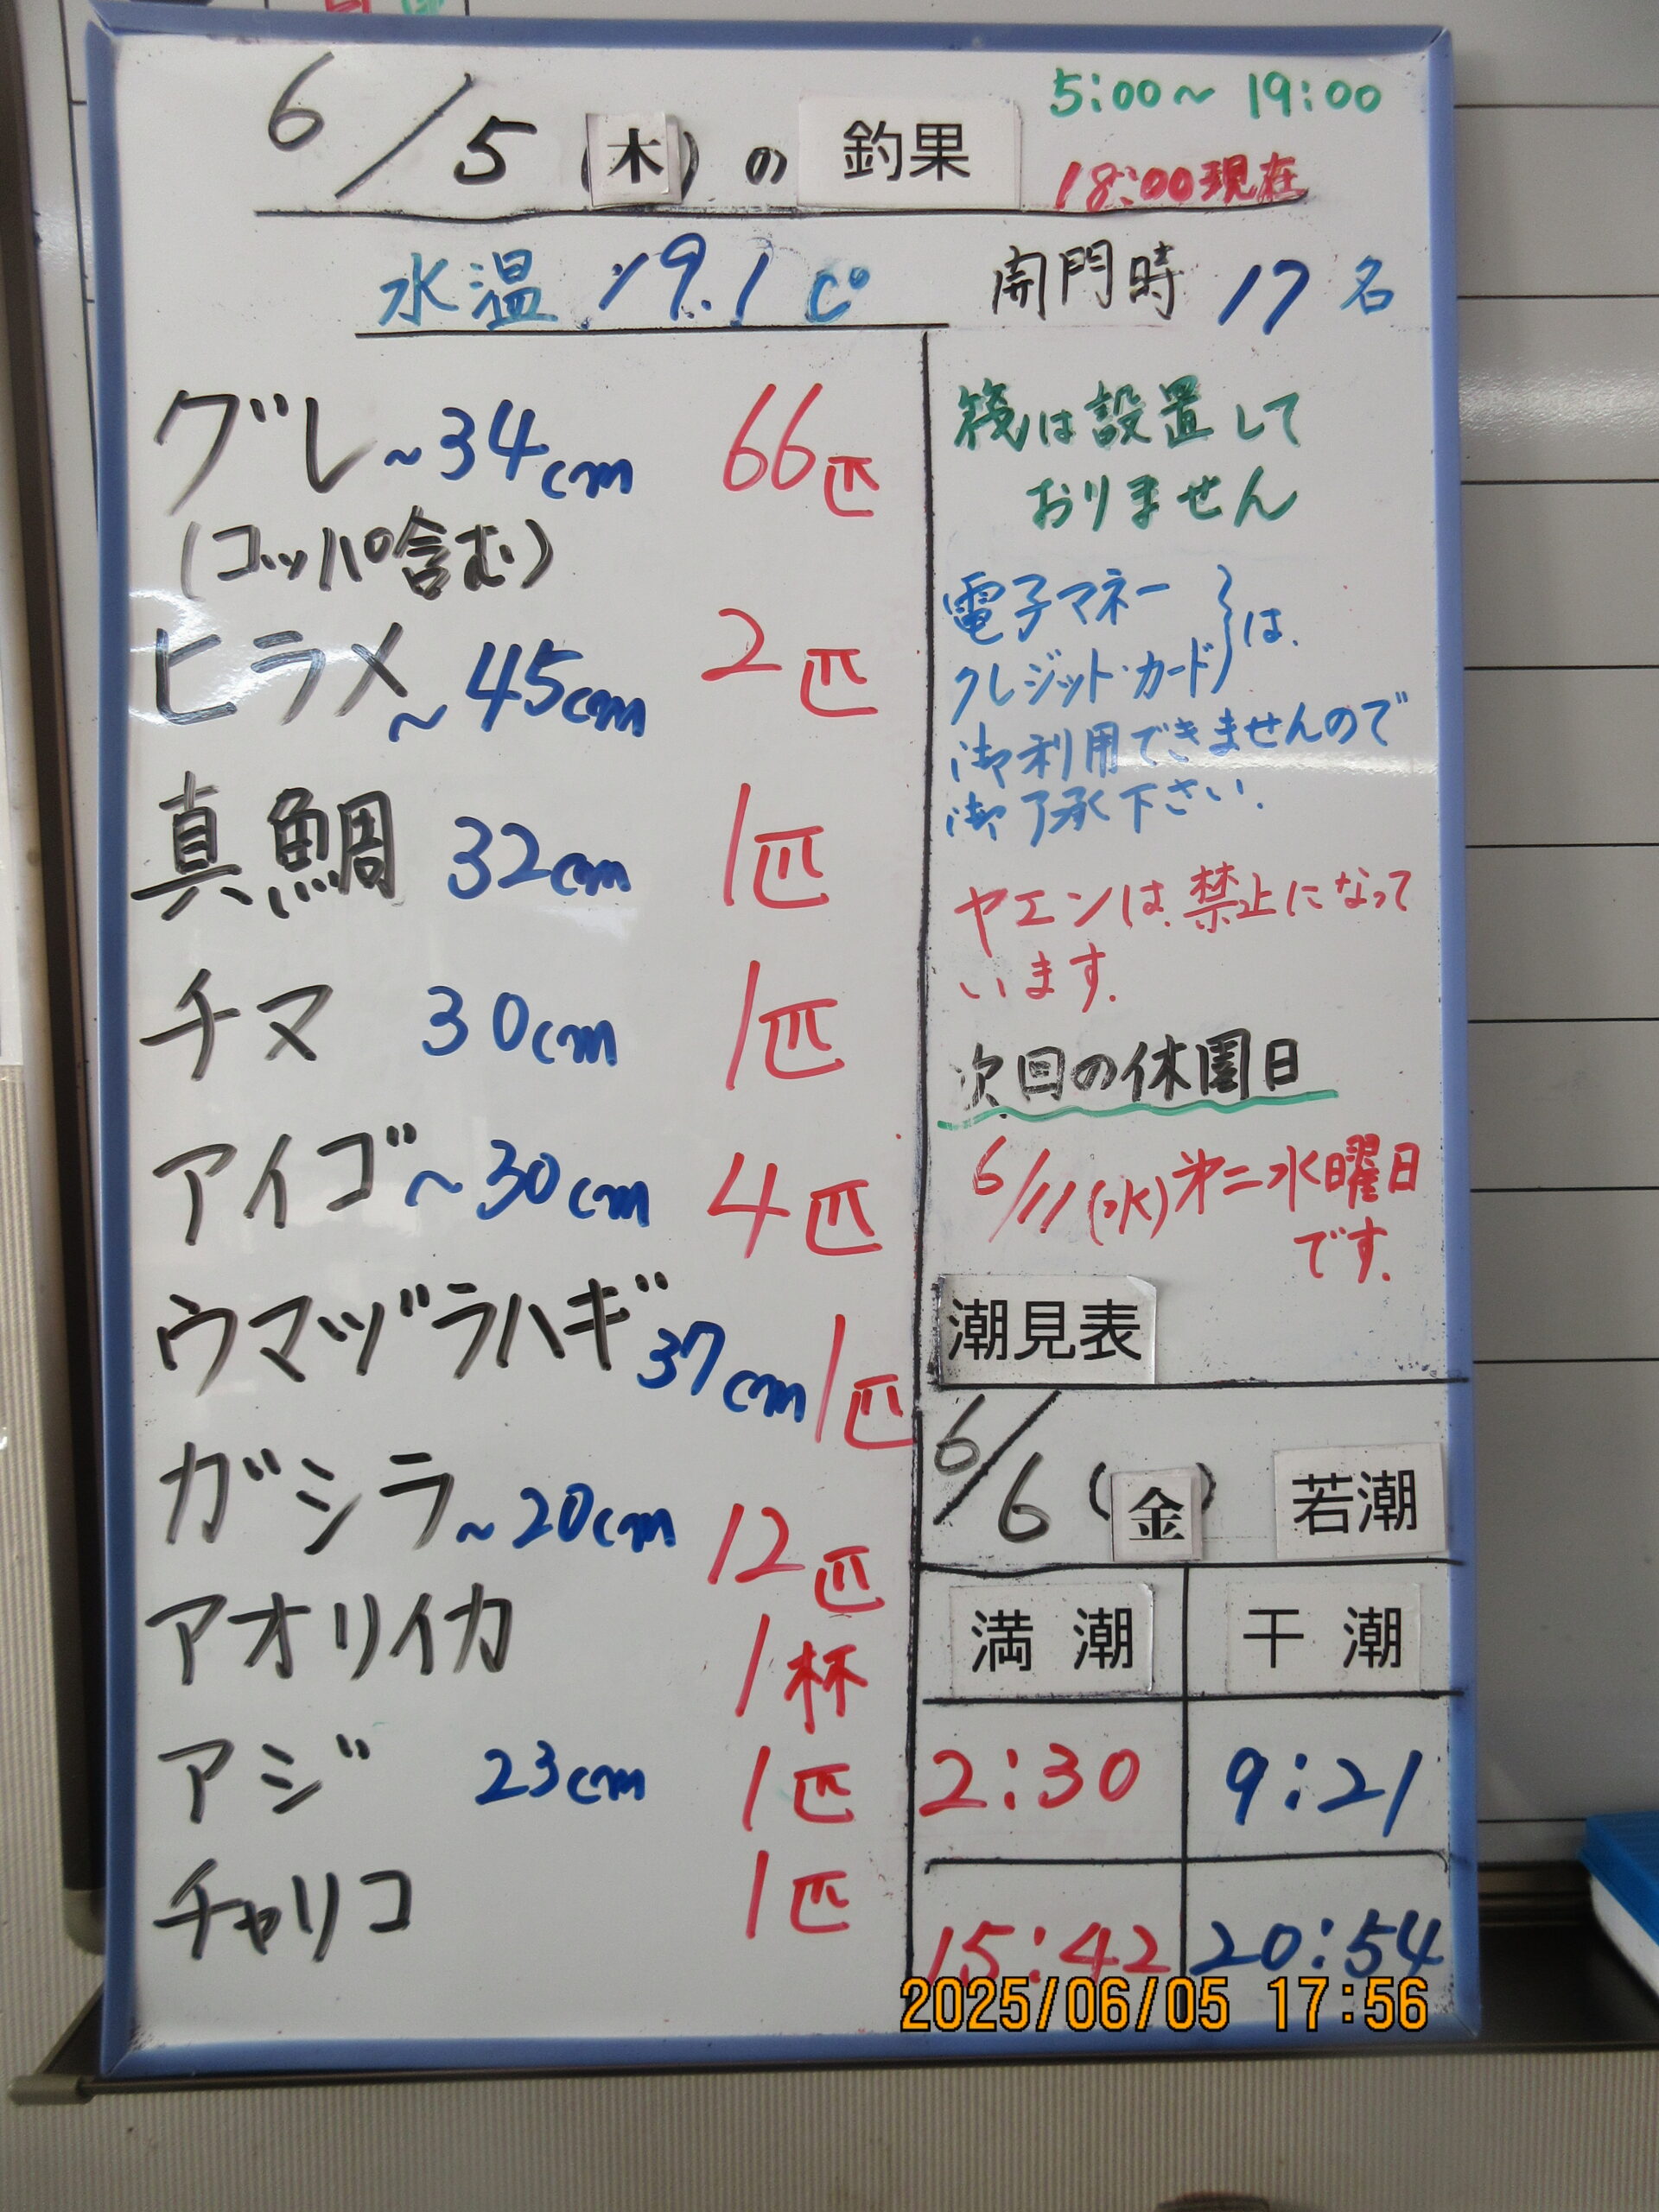 6/5(木)の釣果
5:00~19:00
18:00現在
水温 19.1C°
開門時 17名
グレ~34cm 66匹
(コッパ含む)
ヒラメ~45cm 2匹
真鯛 32cm 1匹
チヌ 30cm 1匹
アイゴ~30cm 4匹
ウマヅラハギ37cm 1匹
ガシラ~20cm 12匹
アオリイカ 1杯
アジ 23cm 1匹
チャリコ 1匹
筏は設置して
おりません
電子マネー
クレジット・カード}は、
御利用できませんので
御了承下さい.
ヤエンは、禁止になって
います.
次回の休園日
6/11(水)第二水曜日
です.
潮見表
6/6(金) 若潮
満潮 干潮
2:30 9:21
15:42 20:54
2025/06/05 17:56